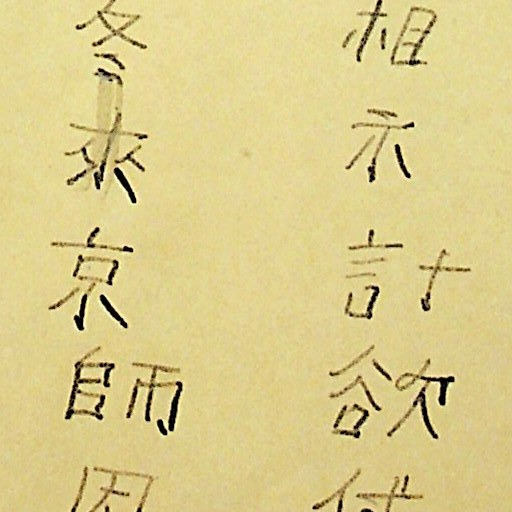 相示計欲付
冬來京師因